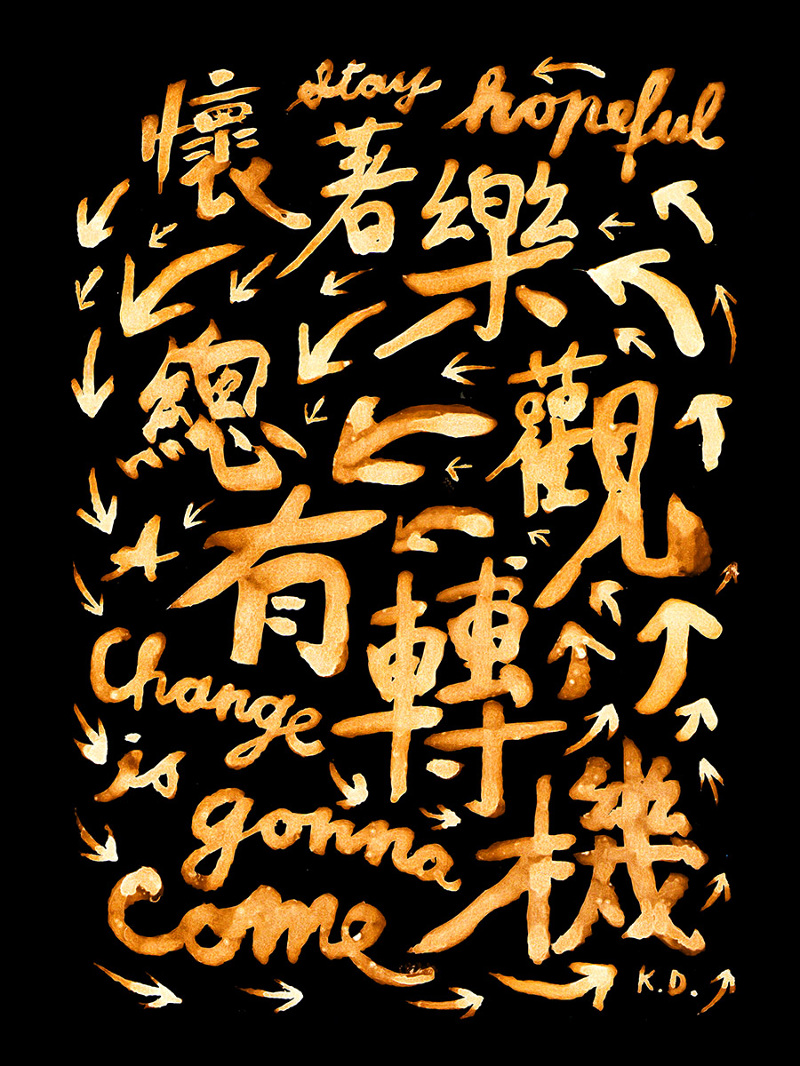 stay hopeful
懷著樂觀
總有轉機
A
Change
is
gonna
come
K.D.